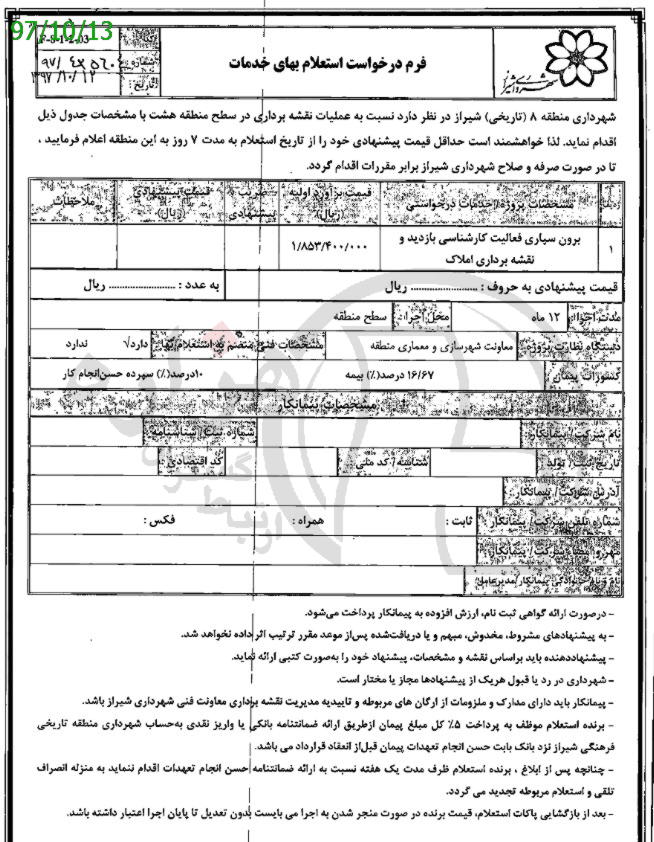 97/10/13
F-8-1-2-03
شماره: ۹۷/۴۳۵۶۰
تاریخ: ۱۳۹۷/۱۰/۱۲
فرم درخواست استعلام بهای خدمات
شهرداری شیراز
شهرداری منطقه ۸ (تاریخی) شیراز در نظر دارد نسبت به عملیات نقشه برداری در سطح منطقه هشت با مشخصات جدول ذیل
اقدام نماید. لذا خواهشمند است حداقل قیمت پیشنهادی خود را از تاریخ استعلام به مدت ۷ روز به این منطقه اعلام فرمایید ،
تا در صورت صرفه و صلاح شهرداری شیراز برابر مقررات اقدام گردد.
مشخصات پروژه/خدمات درخواستی قیمت برآورد اولیه (ریال) ضریب پیشنهادی قیمت پیشنهادی (ریال) ملاحظات
۱ برون سپاری فعالیت کارشناسی بازدید و ۱/۸۵۳/۴۰۰/۰۰۰
نقشه برداری املاک
قیمت پیشنهادی به حروف : ...................... ریال به عدد : ...................... ریال
مدت اجرا: ۱۲ ماه محل اجرا: سطح منطقه
دستگاه نظارت پروژه: معاونت شهرسازی و معماری منطقه مشخصات فنی منضم به استعلام بها: دارد√ ندارد
کسورات پیمان: ۱۶/۶۷ درصد(٪) بیمه ۱۰درصد(٪) سپرده حسن‌انجام کار
مشخصات پیمانکار
نام شرکت/ پیمانکار: شماره ثبت/ شناسنامه:
تاریخ ثبت/ تولد: شناسه/ کد ملی: کد اقتصادی:
آدرس شرکت/ پیمانکار:
شماره تلفن شرکت/ پیمانکار: ثابت : همراه : فکس :
مهر و امضاء شرکت/ پیمانکار:
نام و نام خانوادگی پیمانکار/مدیرعامل:
- درصورت ارائه گواهی ثبت نام، ارزش افزوده به پیمانکار پرداخت می‌شود.
- به پیشنهادهای مشروط، مخدوش، مبهم و یا دریافت‌شده پس‌از موعد مقرر ترتیب اثر داده نخواهد شد.
- پیشنهاددهنده باید براساس نقشه و مشخصات، پیشنهاد خود را به‌صورت کتبی ارائه نماید.
- شهرداری در رد یا قبول هریک از پیشنهادها مجاز یا مختار است.
- پیمانکار باید دارای مدارک و ملزومات از ارگان های مربوطه و تاییدیه مدیریت نقشه برداری معاونت فنی شهرداری شیراز باشد.
- برنده استعلام موظف به پرداخت ۵٪ کل مبلغ پیمان ازطریق ارائه ضمانتنامه بانکی یا واریز نقدی به‌حساب شهرداری منطقه تاریخی
فرهنگی شیراز نزد بانک بابت حسن انجام تعهدات پیمان قبل‌از انعقاد قرارداد می باشد.
- چنانچه پس از ابلاغ ، برنده استعلام ظرف مدت یک هفته نسبت به ارائه ضمانتنامه حسن انجام تعهدات اقدام ننماید به منزله انصراف
تلقی و استعلام مربوطه تجدید می گردد.
- بعد از بازگشایی پاکات استعلام، قیمت برنده در صورت منجر شدن به اجرا می بایست بدون تعدیل تا پایان اجرا اعتبار داشته باشد.